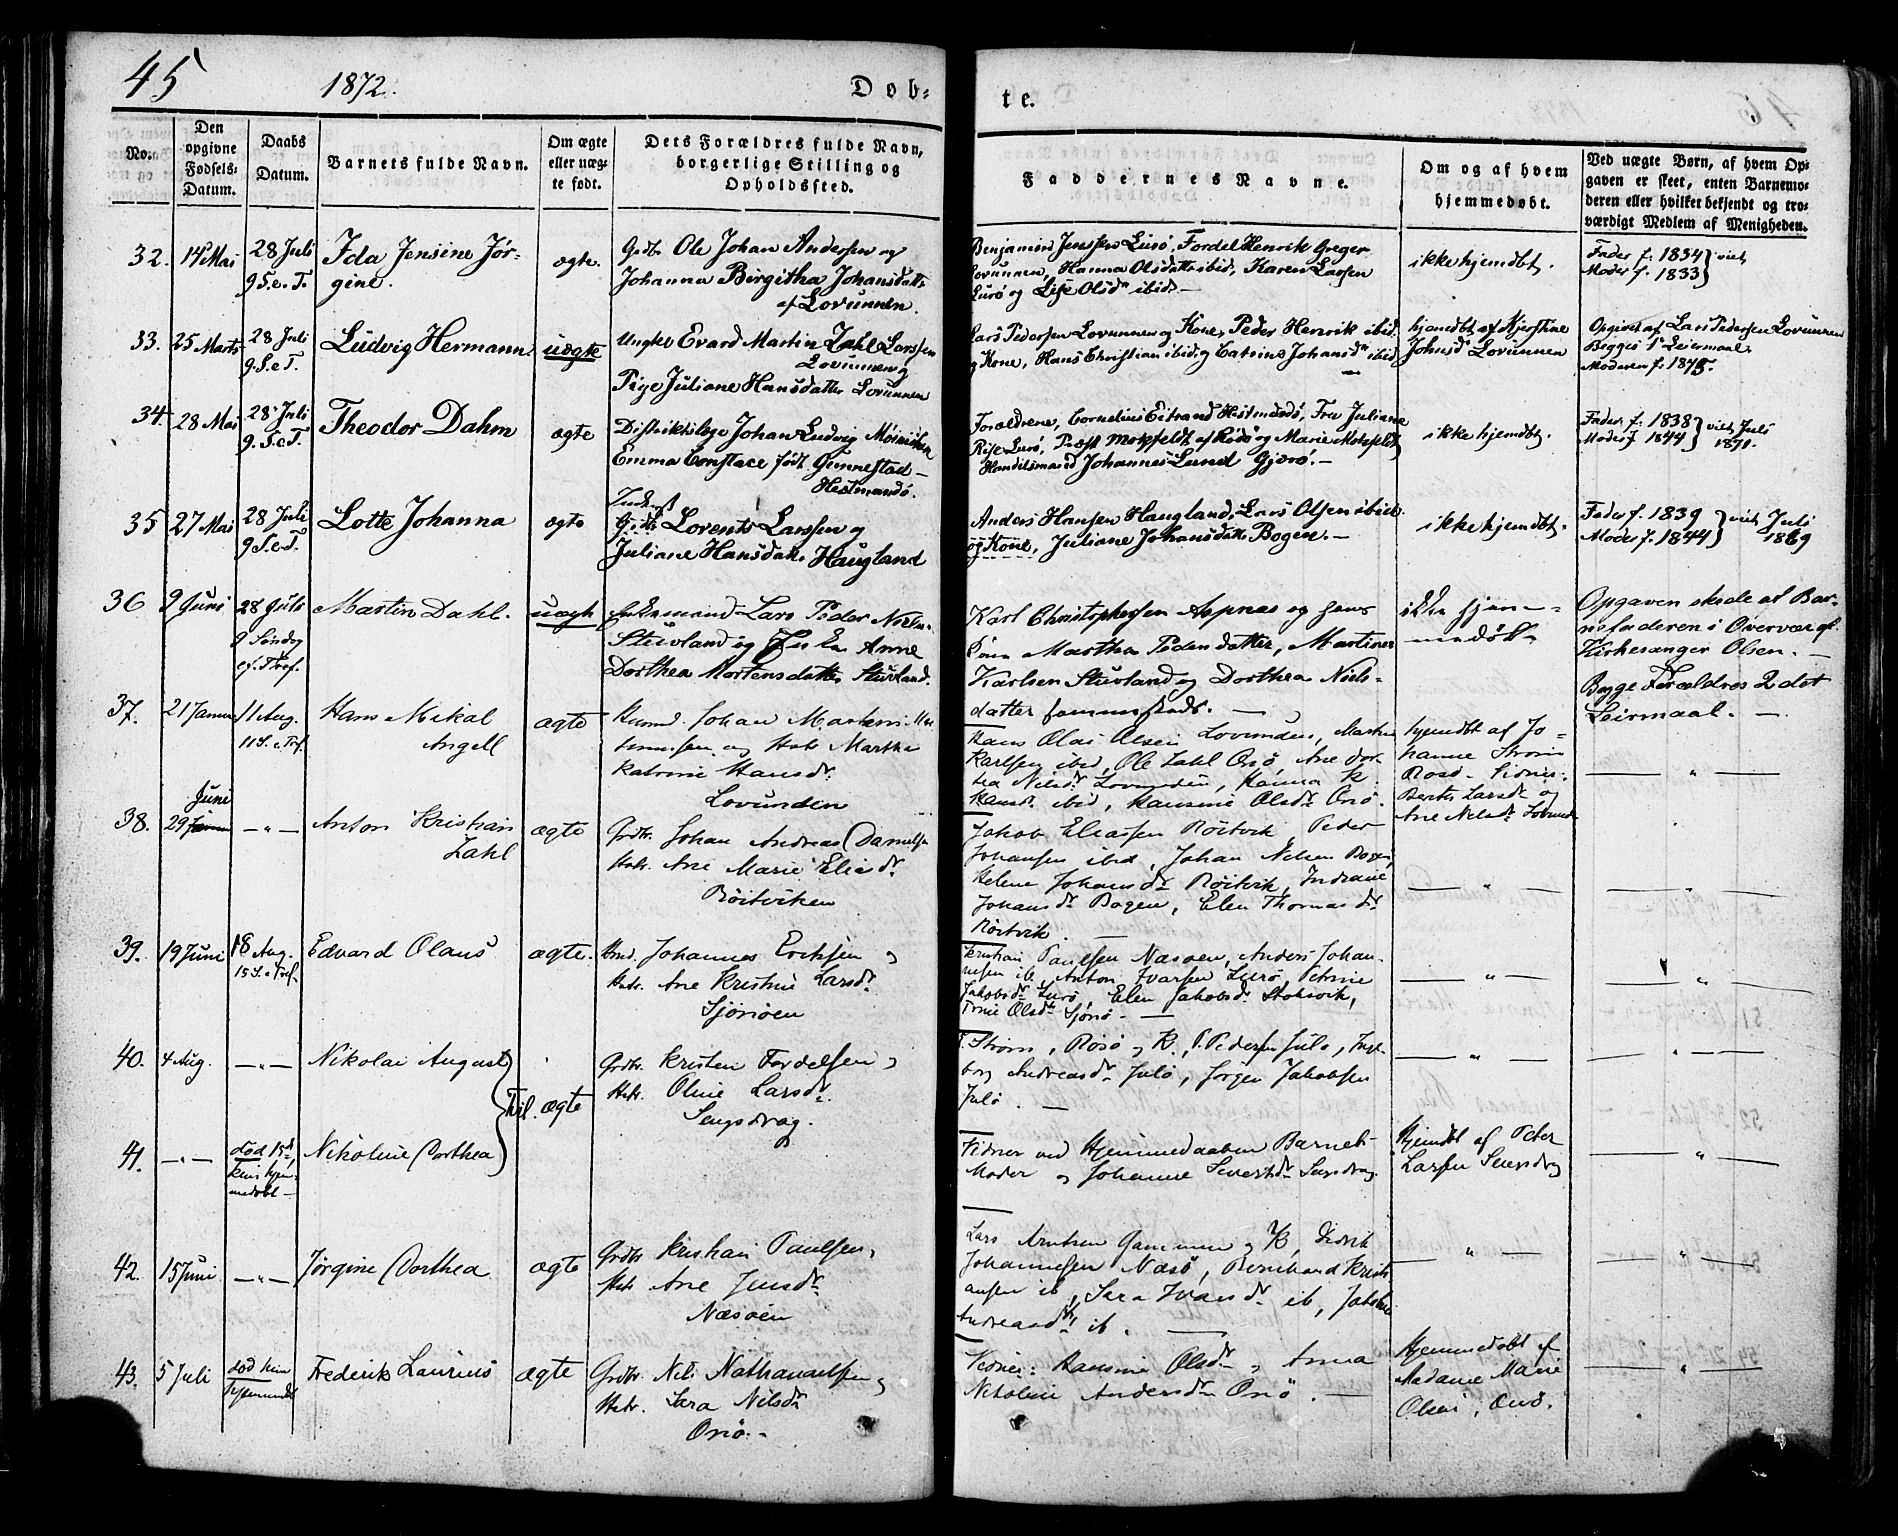 45
1872.
Døb-
te.
No.
Den opgivne Fødsels-Datum.
Daabs Datum.
Barnets fulde Navn.
Om ægte eller uæg-te født.
Dets Forældres fulde Navn, borgerlige Stilling og Opholdsted.
Faddernes Navne.
Om og af hvem hjemmedøbt.
Ved uægte Børn, af hvem Op-gaven er skeet, enten Barnemo-deren eller hvilket bekjendt og tro-værdigt Medlem af Menigheden.
32. 14 Mai
28 Juli
9 S. e. T.
Ida Jensine Jør-
gine.
ægte.
Grdbr. Ole Johan Andersen og
Johanna Birgitha Johansdatter
af Lovunnen.
Benjamin Jenssen Lurø, Fordel Henrik Greger
Lovunnen, Hanna Olsdatter ibid, Karen Larsen
Lurø og Lise Olsdr ibid. —
ikke hjemdøbt.
Fader f. 1834
Moder f. 1833 } viet
33. 25 Marts
28 Juli
9. S. e T.
Ludvig Hermann.
uægte
Ungkr Evard Martin Zahl Larssen
Lovunnen og
Pige Juliane Hansdatter Lovunnen
Lars Pedersen Lovunnen og Kone, Peder Henrik ibid.
og Kone, Hans Christian ibid. og Catrine Johansdr ibid
—
hjemdøbt af Kjerstine
Johnsdr Lovunnen
Opgivet af Lars Pedersen Lovunnen
Begges 1ste Leiermaal.
Moderen f. 1845.
34. 28 Mai
28 Juli
9. S. e T.
Theodor Dahm
ægte
Distriktslæge Johan Ludvig
Emma Constace født Gunnestad —
Hestmandø.
Forældrene, Cornelius Hestmandø, Fru Juliane
Lurø, Præst Motzfeldt af Rødø og Marie Motzfeldt
Handelsmand Johannes Lund Gjærø. —
ikke hjemdøbt.
Fader f. 1838
Moder f. 1844 } viet Juli
1871.
35 27 Mai
28 Juli
9 S. e. T.
Lotte Johanna
ægte
Grdbr Lorents Larssen og
Juliane Hansdatter Haugland
Anders Hansen Haugland, Lars Olsen ibid.
og Kone, Juliane Johansdatter Bogen. —
ikke hjemdøbt.
Fader f. 1839
Moder f. 1844 } viet Juli
1869
36 9 Juni
28 Juli
9 Søndag
ef. Tref.
Martin Dahl.
uægte
Enkemand Lars Peder
Stuvland og Anne
Dorthea Mortensdatter Stuvland.
Karl Christophersen Aspnæs og hans
Martha Pedersdatter, Martines
Karlsen Stuvland og Dorthea Niels-
datter sammesteds. —
ikke hjem-
medøbt
Opgaven skede af Bar-
nefaderen i Overvær af
Kirkesanger Olsen. —
Begge Forældres 2det
Leiermaal. —
37. 21 Januar
11 Aug.
11 S. e Tref.
Hans Mikal
Angell
ægte
Johan Marten
og Hstr Martha
Katrine Hansdr.
Lovunden
Hans Olai Olsen Lovunden, Marten
Karlsen ibid, Ole Zahl Onø, Ane Dor-
tea Nilsdr Lovunden, Hanna K.
Hansdr. ibid, Hansine Olsdr Onø.
hjemdbt af Jo-
hanne Strøm
Rosø - Vidner.
Berte Larsdr og
Ane Nelsdr Lovund.
— " —
38. 29 Juni
— " —
Anton Kristian
Zahl
ægte
Grdbr. Johan Andreas Danielsen
Hstr. Ane Marie Eliasdr.
Röitviken
Jakob Eliassen Röitvik, Peder
Johansen ibid, Johan Nelsen Bogen,
Helene Johansdr Röitvik, Indiane
Johansdr Bogen, Elen Thomasdr
Röitvik. —
— " —
— " —
39. 19 Juni
18 Aug.
15 S. e Tref.
Edvard Olaus
ægte.
Johannes Eriksen og
Hstr. Ane Kristine Larsdr.
Sjonøen
Kristian Paulsen Næsøen, Anders Johan-
nesen ib., Anton Ivarsen Lurø, Petrine
Jakobsdr Lurø, Elen Jakobsdr Stokvik,
Olsdr Sjonø. —
— " —
— " —
40. 4 Aug.
— " —
Nikolai August
Tvil. ægte
Grdbr. Kristen Fordelsen og
Hstr. Oline Larsdr.
Sengsdrag.
Strøm, Rosø og K., P. Pedersen Julø, Inge-
borg Andreasdr Julø, Jørgen Jakobsen
Julø. —
— " —
— " —
41. — " —
død 15d,
kun hjem-
medøbt —
Nikoline Dorthea
Vidner ved Hjemmedaaben Barnets
Moder og Johanne Sivertsdr Sengsdrag
Hjemdbt af Peter
Larsen Sengsdrag
— " —
42. 15 Juni
— " —
Jørgine Dorthea
ægte
Grdbr Kristian Paulsen,
Hstr Ane Jensdr.
Næsøen
Lars Arntsen Gammen og K, Didrik
Johannesen Næsø, Bernhard Kristi-
ansen ib, Sara Ivarsdr ib, Jakobine
Andreasdr ib. —
— " —
— " —
43. 5 Juli
død kun
hjemmedbt
Frederik Laurius
ægte
Grdbr. Nils Nathanaelsen og
Hstr. Sara Nilsdr
Onø. -
Vidner: Hansine Olsdr og Anna
Nikoline Andersdr Onø. —
Hjemmedøbt af
Madame Marie
Olsen, Onø.
— " —